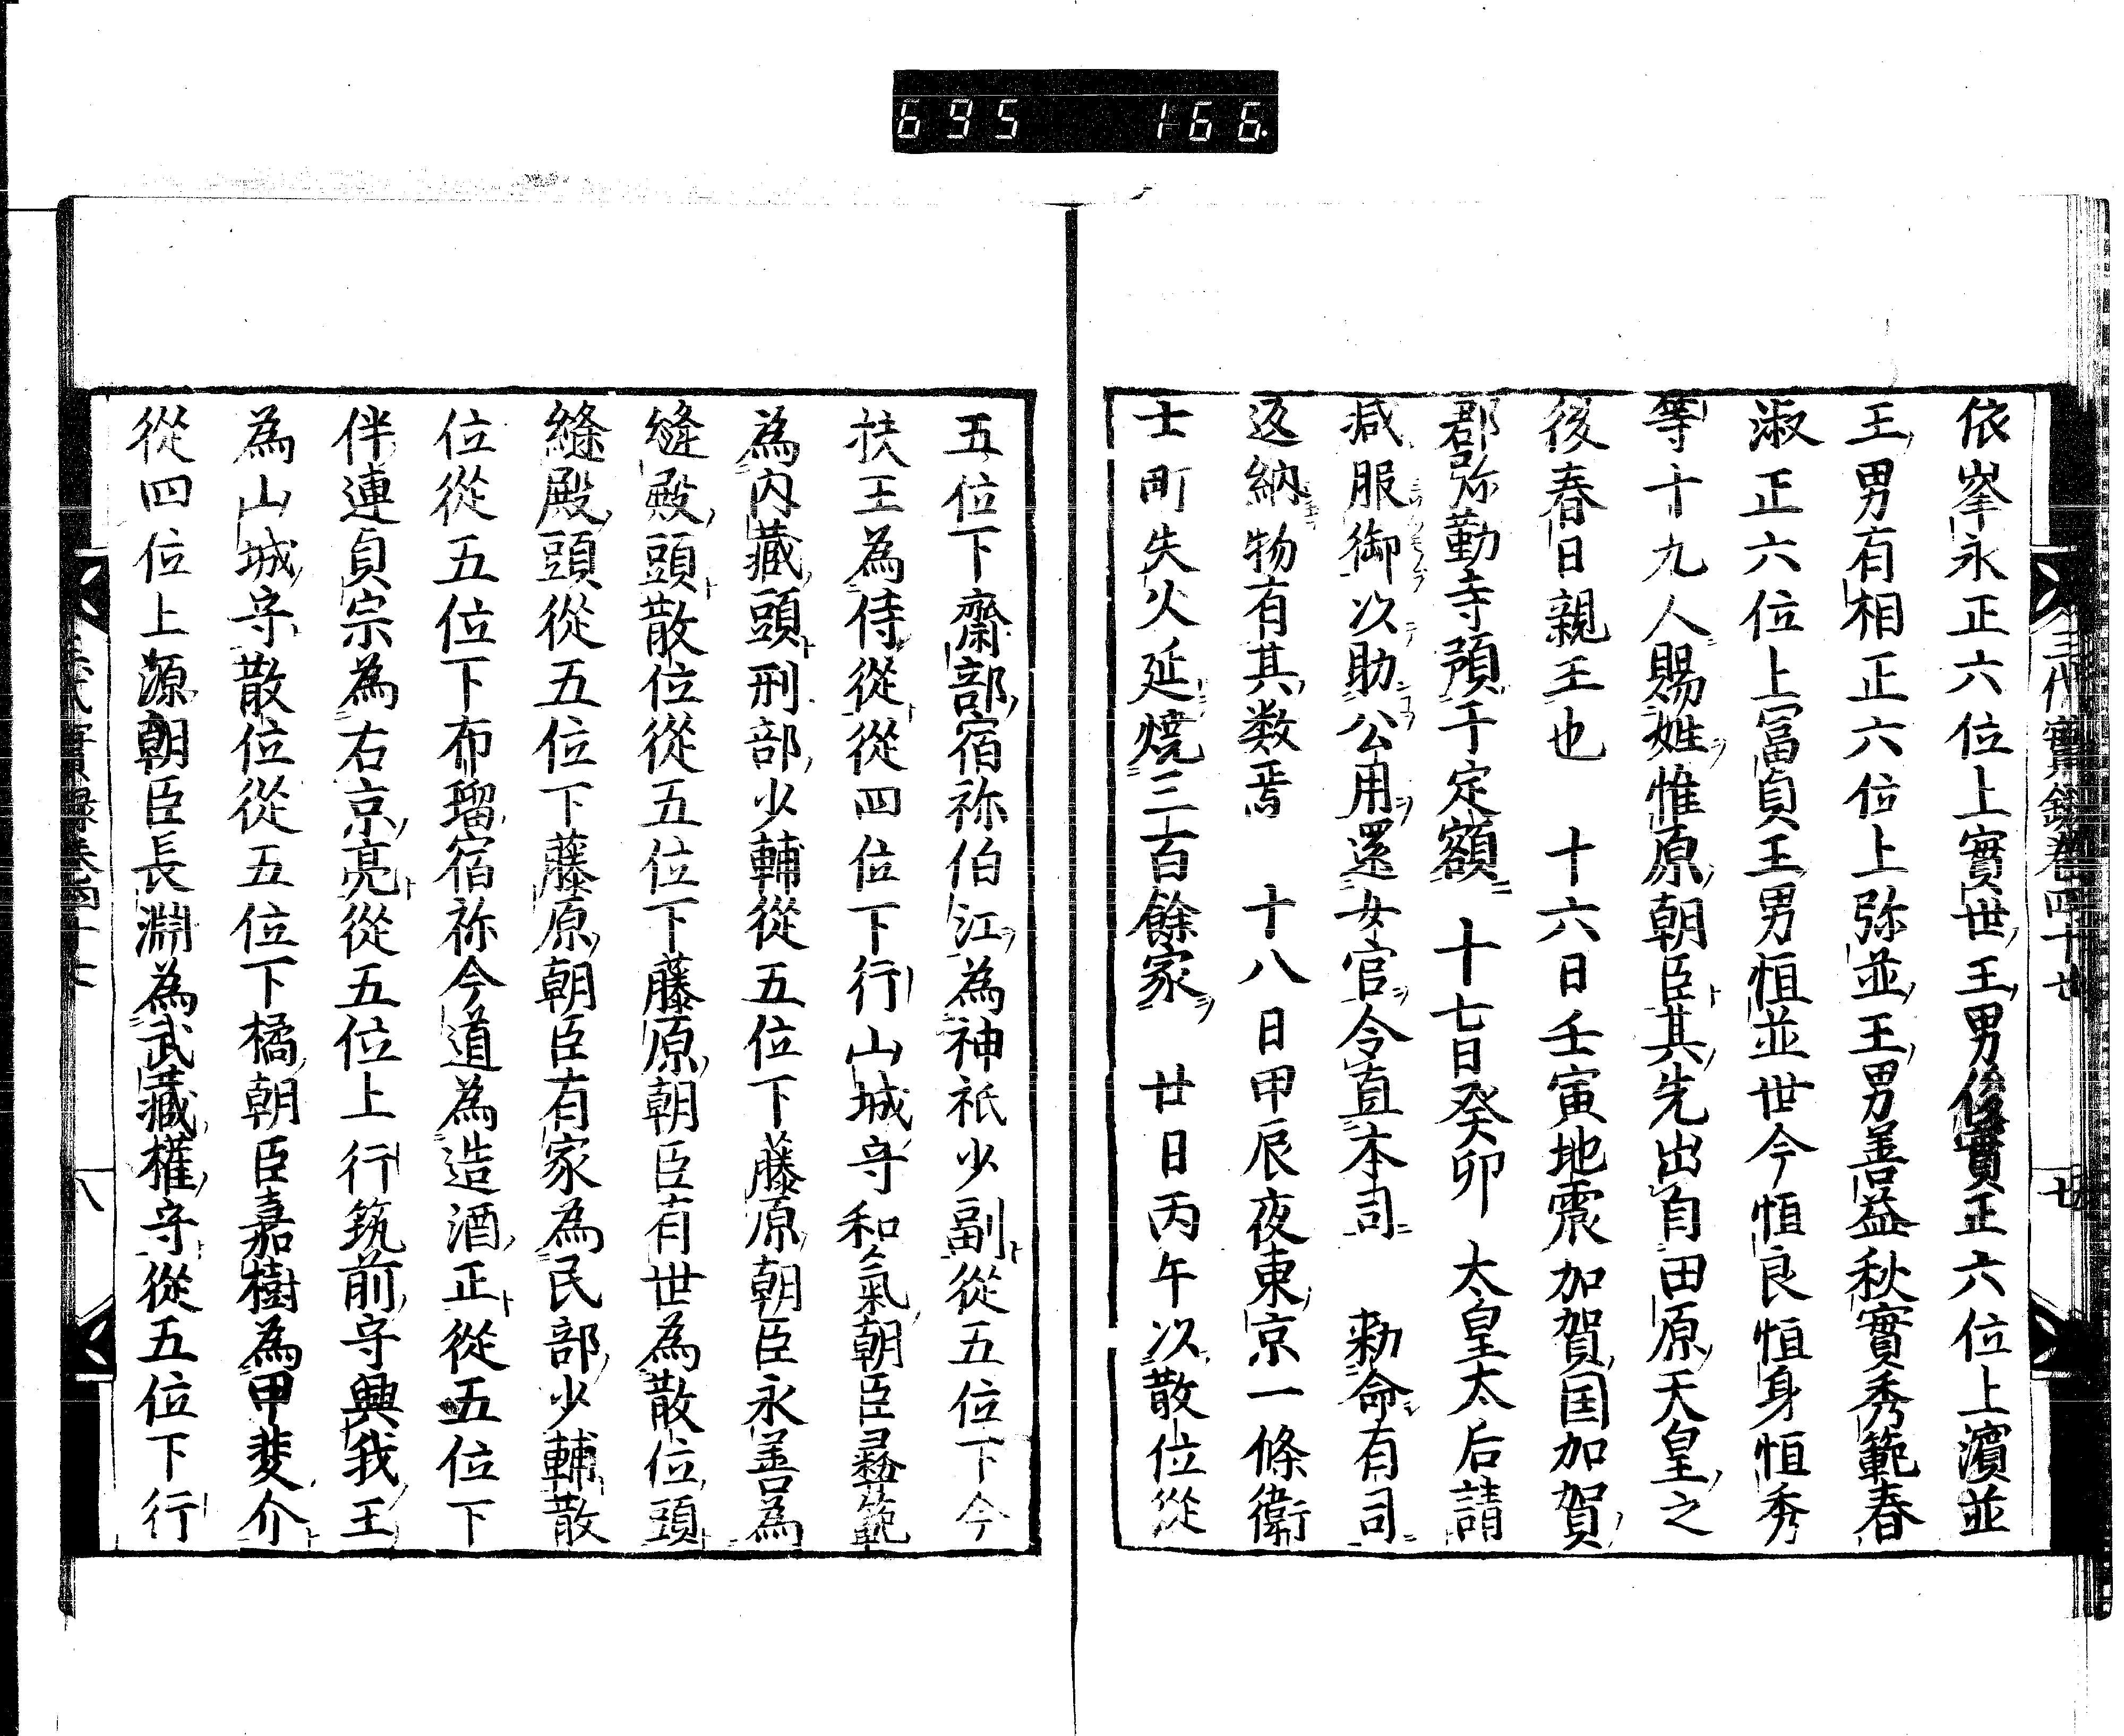 695 166.
依峯永正六位上實世王男後實正六位上濵並
王男有相正六位上弥並王男善益秋實秀範春
淑正六位上冨貞王男恒並世今恒良恒身恒秀
等十九人賜姓惟原朝臣其先出自田原天皇之
後春日親王也 十六日壬寅地震加賀国加賀
郡弥勤寺預于定額 十七日癸卯 太皇太后請
减服御以助公用還女官令直本司 勑命有司
返納物有其数焉 十八日甲辰夜東京一條衛
士町失火延焼三百餘家 廿日丙午以散位從
五位下齋部宿祢伯江為神祇少副從五位下今
扶王為侍從從四位下行山城守和氣朝臣彛範
為内藏頭刑部少輔從五位下藤原朝臣永善為
縫殿頭散位從五位下藤原朝臣有世為散位頭
縫殿頭從五位下藤原朝臣有家為民部少輔散
位從五位下布瑠宿祢今道為造酒正從五位下
伴連貞宗為右京亮從五位上行筑前守興我王
為山城守散位從五位下橘朝臣嘉樹為甲斐介
從四位上源朝臣長淵為武藏權守從五位下行